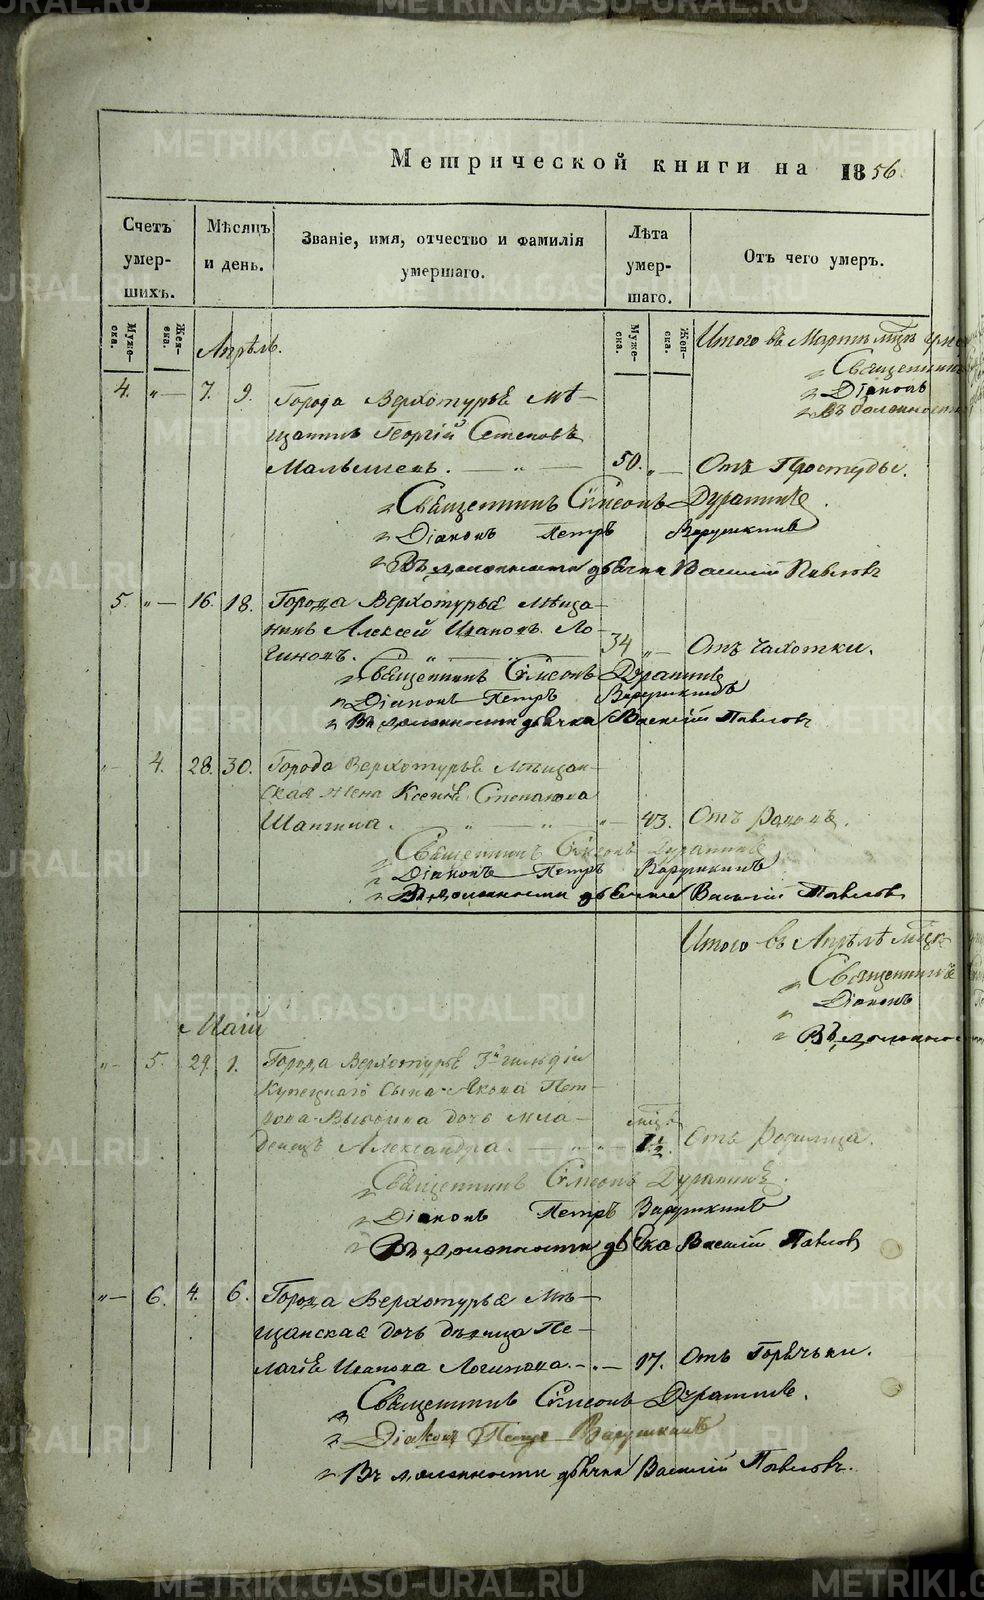 METRIKI.GASO-URAL.RU
Метрической книги на 1856.
Счетъ умер-шихъ.
Мѣсяцъ и день.
Званіе, имя, отчество и фамилія умершаго.
Лѣта умер-шаго.
Отъ чего умеръ.
Муже-ска.
Жен-ска.
Муже-ска.
Жен-ска.
Апрѣль.
Итого въ Мартѣ мцѣ
Священникъ
Діаконъ
Въ должности
4. " — 7. 9. Города Верхотурья Мѣ-
щанинъ Георгій Семеновъ
Малышевъ. — " — 50. " — Отъ Простуды.
Священникъ Симеонъ Дурапинъ
Діаконъ Петръ Варушкинъ
Въ должности дьячка Василій Павловъ
5. " — 16. 18. Города Верхотурья Мѣща-
нинъ Алексей Ивановъ Ло-
гиновъ. — " — 34 " — Отъ чахотки.
Священникъ Симеонъ Дурапинъ
Діаконъ Петръ Варушкинъ
Въ должности дьячка Василій Павловъ
" — 4. 28. 30. Города Верхотурья Мѣщан-
ская жена Ксенія Степанова
Шангина. — " — " — " — 43. Отъ родовъ.
Священникъ Симеонъ Дурапинъ
Діаконъ Петръ Варушкинъ
Въ должности дьячка Василій Павловъ
Итого въ Апрѣлѣ мцѣ
Священникъ
Діаконъ
Въ должности
Маій
" — 5. 29. 1. Города Верхотурья 3й гильдіи
Купецкаго Сына Якова Пет-
рова дочь мла-
денецъ Александра. — " " мцъ 1½. Отъ Родимца.
Священникъ Симеонъ Дурапинъ.
Діаконъ Петръ Варушкинъ
Въ должности дьячка Василій Павловъ
" — 6. 4. 6. Города Верхотурья Мѣ-
щанская дочь дѣвица Пе-
лагія Иванова Логинова. — . — 17. Отъ Горячьки.
Священникъ Симеонъ Дурапинъ.
Діаконъ Петръ Варушкинъ
Въ должности дьячка Василій Павловъ.